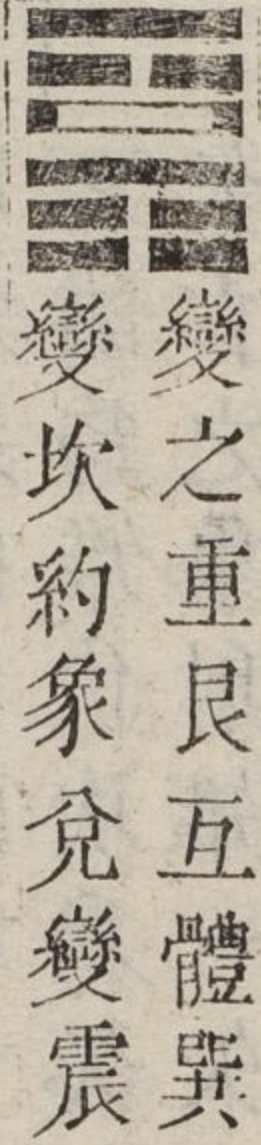 變之重艮互體巽
變坎約象兌變震